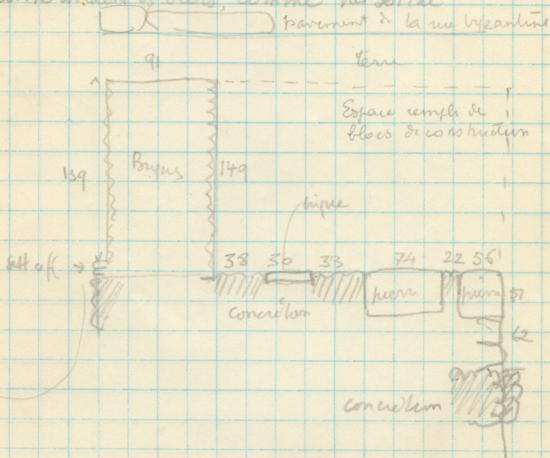 pavement de la rue byzantine
91
terre
Espace rempli de
blocs de construction
139
Briques
149
brique
Sett off
38 30 33 74 22 56
pierre
pierre
51
concrétion
62
concrétion